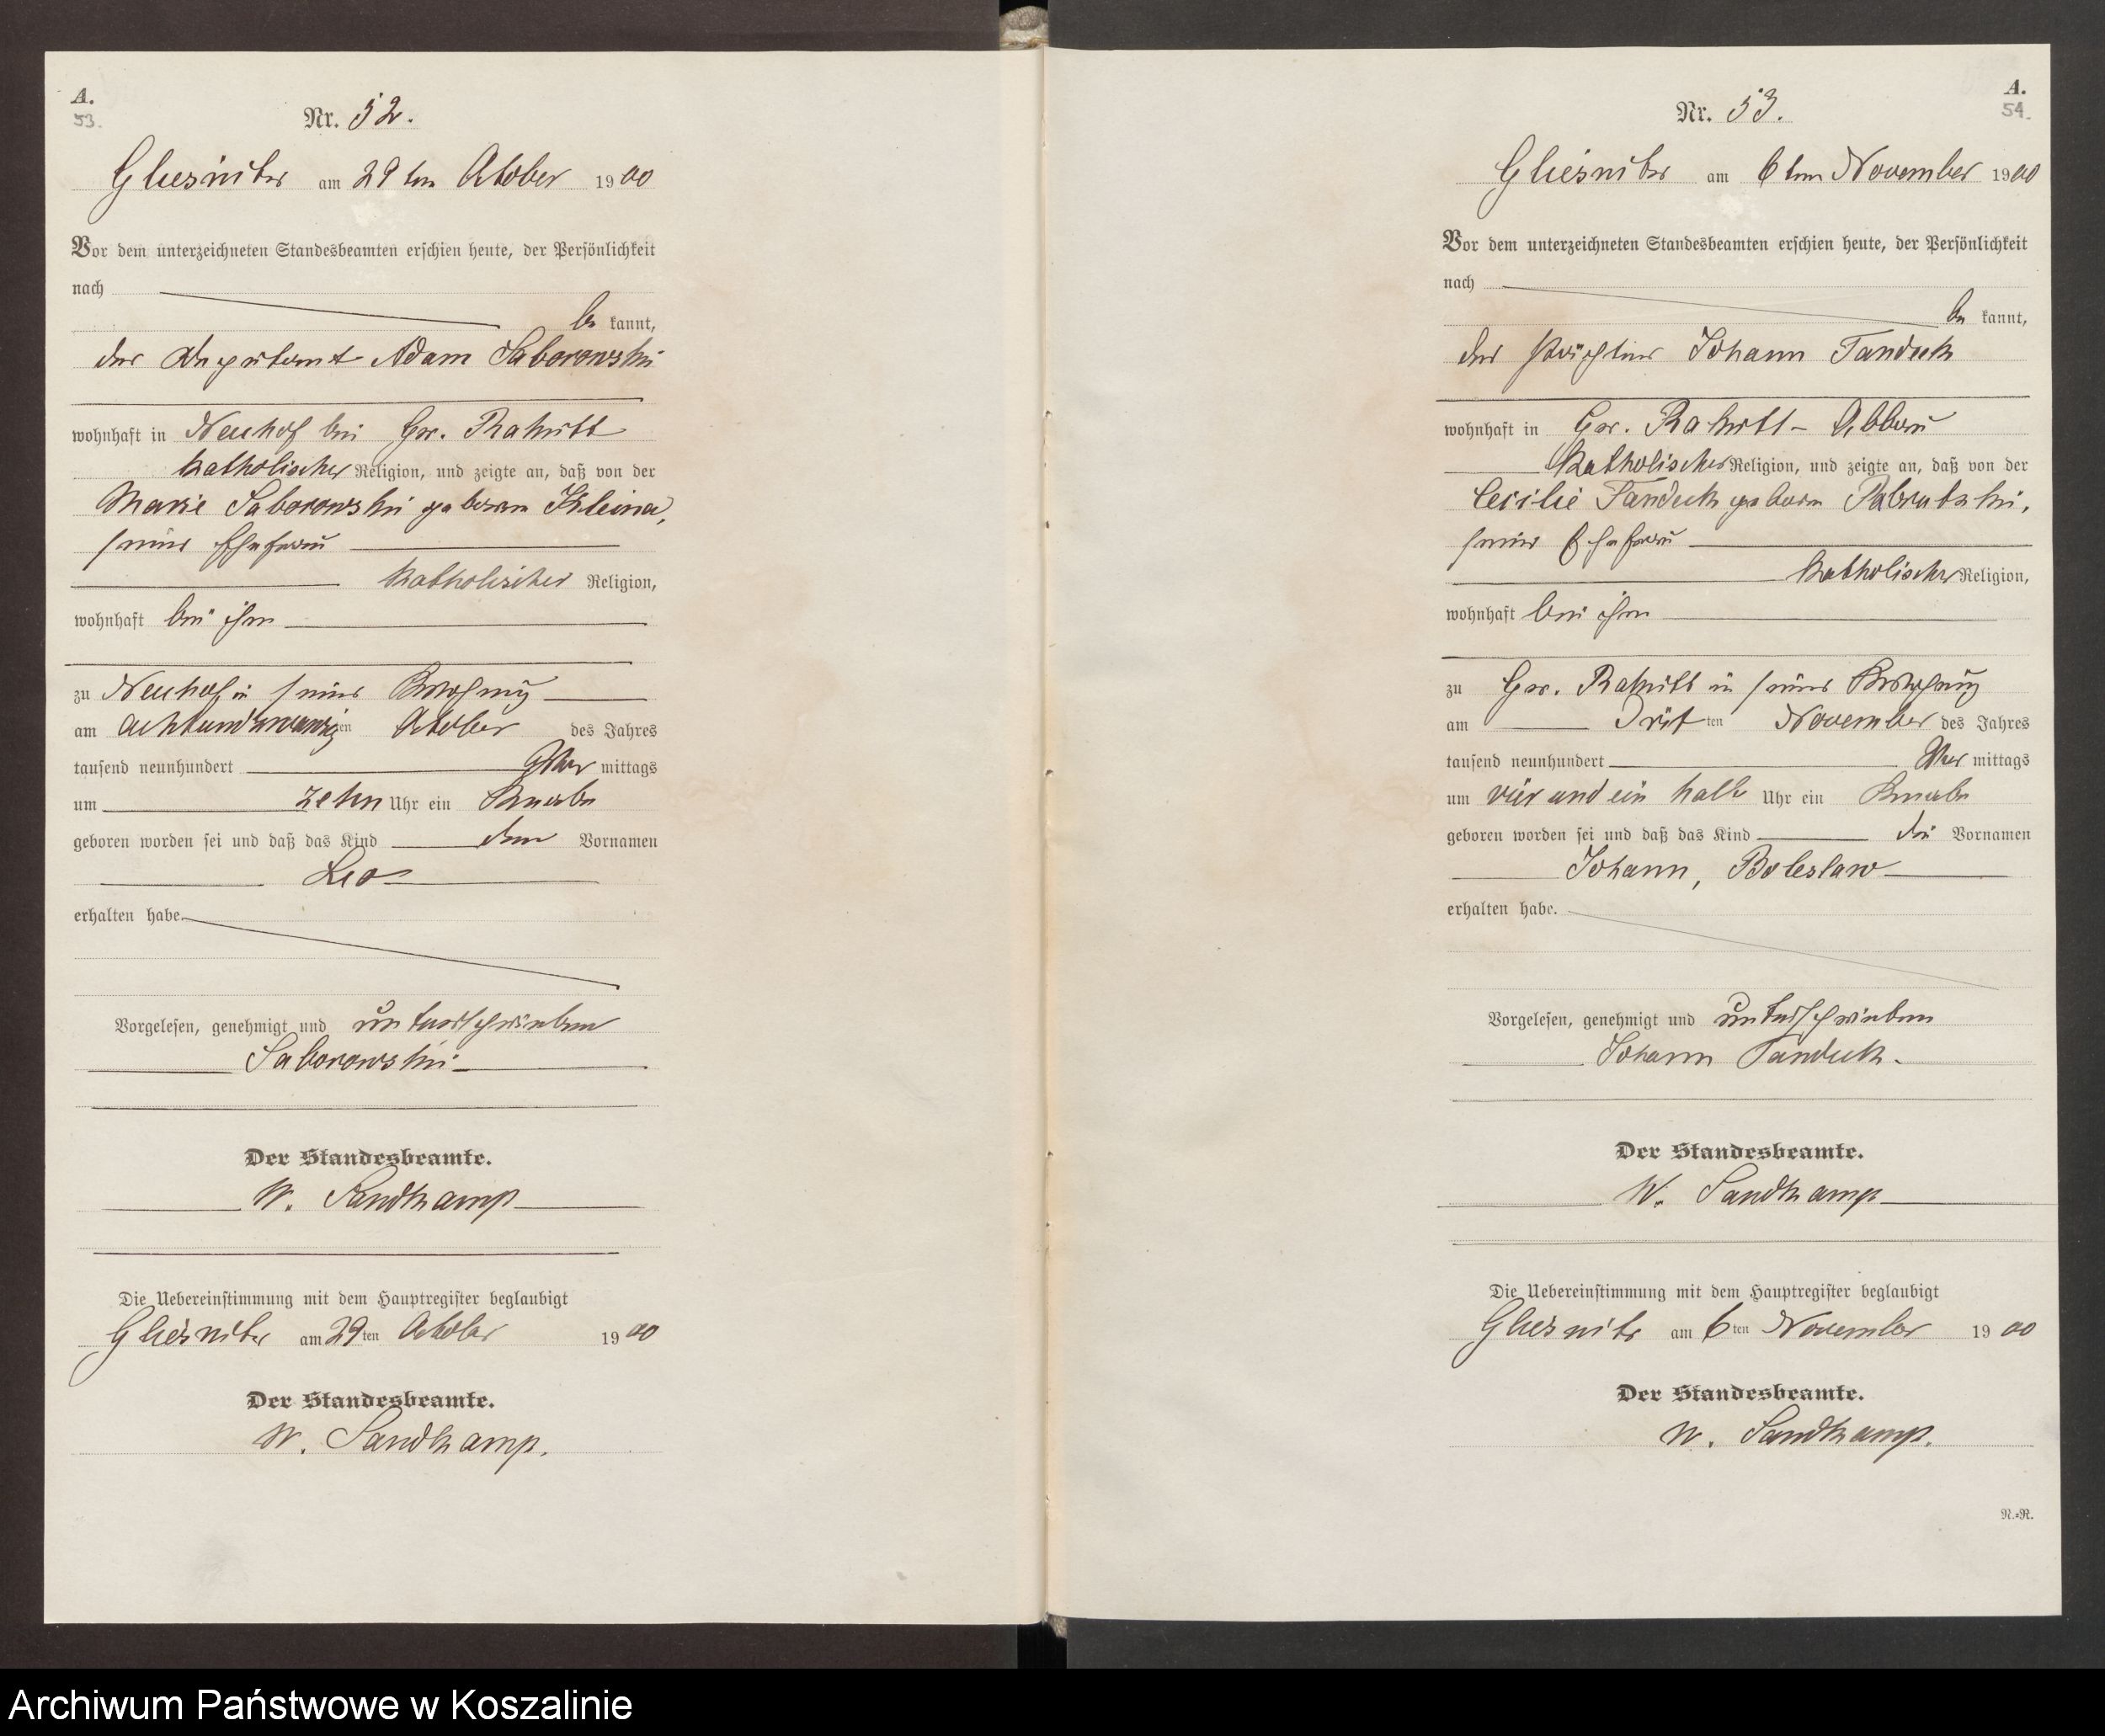 A.
53.
Nr. 52.
Gliesnitz am 29ten Oktober 1900
Vor dem unterzeichneten Standesbeamten erschien heute, der Persönlichkeit
nach
be kannt,
der Deputant Adam Saborowski
wohnhaft in Neuhof bei Gr. Rakitt
katholischer Religion, und zeigte an, daß von der
Marie Saborowski geborene Kleina,
seiner Ehefrau
katholischer Religion,
wohnhaft bei ihm
zu Neuhof in seiner Wohnung
am achtundzwanzigten Oktober des Jahres
tausend neunhundert Vor mittags
um zehn Uhr ein Knabe
geboren worden sei und daß das Kind den Vornamen
Leo
erhalten habe.
Vorgelesen, genehmigt und unterschrieben
Saborowski
Der Standesbeamte.
W. Sandkamp
Die Uebereinstimmung mit dem Hauptregister beglaubigt
Gliesnitz am 29ten Oktober 1900
Der Standesbeamte.
W. Sandkamp.
A.
54.
Nr. 53.
Gliesnitz am 6ten November 1900
Vor dem unterzeichneten Standesbeamten erschien heute, der Persönlichkeit
nach
be kannt,
der Johann Tandek
wohnhaft in Gr. Rakitt-
katholischer Religion, und zeigte an, daß von der
Cecilie Tandek geborne
seiner Ehefrau
katholischer Religion,
wohnhaft bei ihm
zu Gr. Rakitt in seiner Wohnung
am Dritten November des Jahres
tausend neunhundert Vor mittags
um vier und ein halb Uhr ein Knabe
geboren worden sei und daß das Kind die Vornamen
Johann, Boleslaw
erhalten habe.
Vorgelesen, genehmigt und unterschrieben
Johann Tandek.
Der Standesbeamte.
W. Sandkamp
Die Uebereinstimmung mit dem Hauptregister beglaubigt
Gliesnitz am 6ten November 1900
Der Standesbeamte.
W. Sandkamp.
N.=R.
Archiwum Państwowe w Koszalinie